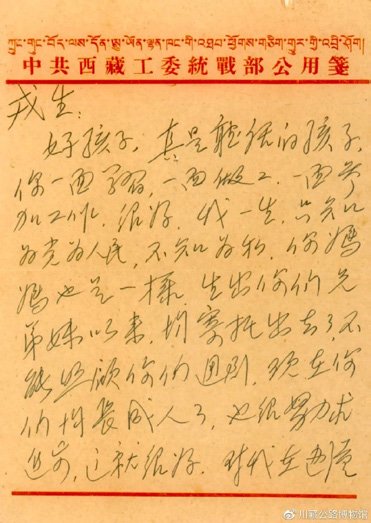 ཀྲུང་གུང་བོད་ལས་དོན་ཨུ་ཡོན་ལྷན་ཁང་གི་འཐབ་ཕྱོགས་གཅིག་གྱུར་གྱི་འབྲི་ཤོག།
中共西藏工委統戰部公用箋
戎生:
好孩子,真是聽话的孩子,
你一面学習,一面做工,一面参
加工作,很好,我一生,只知
为党为人民,不知为私,你媽
媽也是一樣,生出你们兄
弟妹以来,均寄托出去了,不
能照顾你们週到,现在你
们均長成人了,也很努力求
進步,这就很好,
川藏公路博物馆